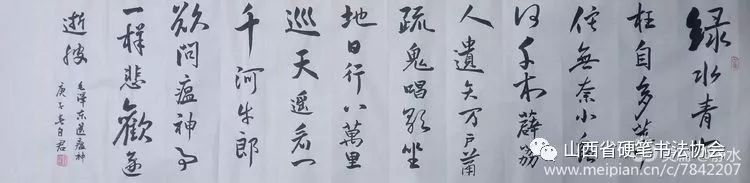 緑水青山
枉自多華
佗無奈小虫
何千村薜荔
人遺矢万户蕭
疏鬼唱歌坐
地日行八萬里
巡天遥看一
千河牛郎
欲問瘟神事
一樣悲歡逐
逝波
毛澤東送瘟神
庚子春自君
山西省硬笔书法协会
www.meipian.cn/c/7842207